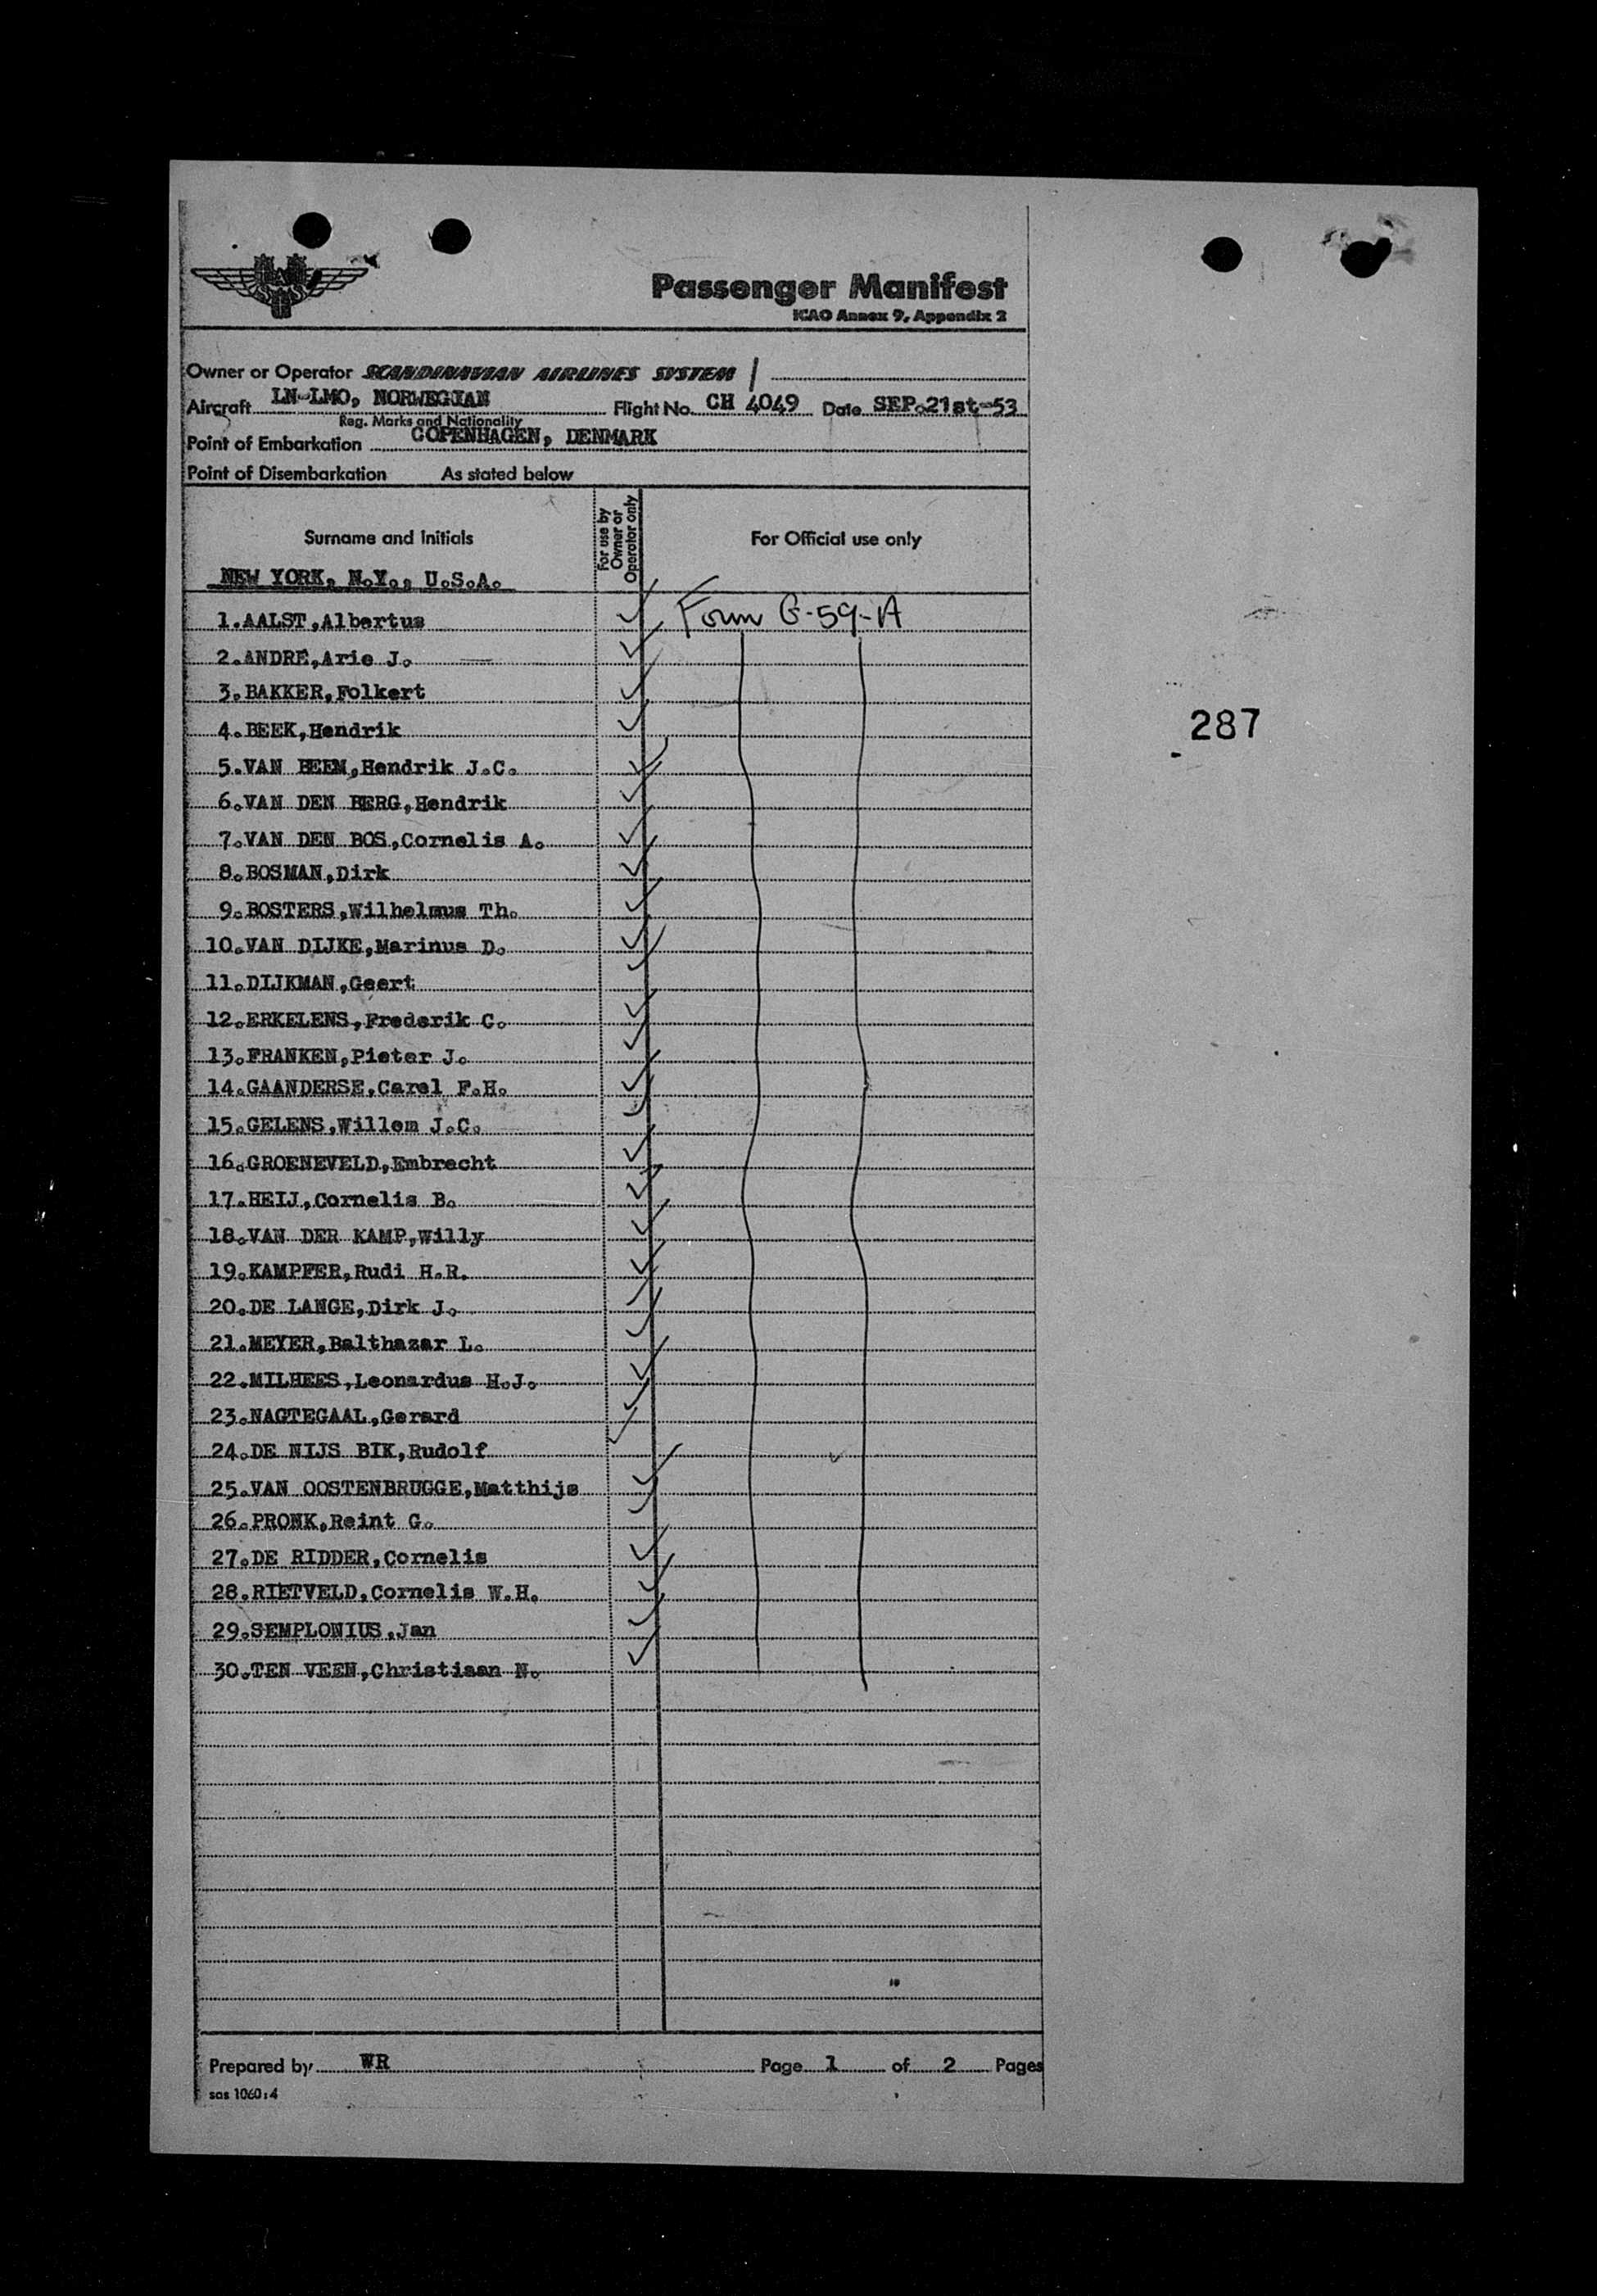 SAS
Passenger Manifest
ICAO Annex 9, Appendix 2
Owner or Operator SCANDINAVIAN AIRLINES SYSTEM
Aircraft LN-LMO, NORWEGIAN Flight No. CH 4049 Date SEP.21st-53
Reg. Marks and Nationality
Point of Embarkation COPENHAGEN, DENMARK
Point of Disembarkation As stated below
Surname and Initials
For use by Owner or Operator only
For Official use only
NEW YORK, N.Y., U.S.A.
1.AALST,Albertus Form G-59-A
2.ANDRÉ,Arie J.
3.BAKKER,Folkert
4.BEEK,Hendrik
287
5.VAN BEEM,Hendrik J.C.
6.VAN DEN BERG,Hendrik
7.VAN DEN BOS,Cornelis A.
8.BOSMAN,Dirk
9.BOSTERS,Wilhelmus Th.
10.VAN DIJKE,Marinus D.
11.DIJKMAN,Geert
12.ERKELENS,Frederik C.
13.FRANKEN,Pieter J.
14.GAANDERSE,Carel F.H.
15.GELENS,Willem J.C.
16.GROENEVELD,Embrecht
17.HEIJ,Cornelis B.
18.VAN DER KAMP,Willy
19.KAMPFER,Rudi H.R.
20.DE LANGE,Dirk J.
21.MEYER,Balthazar L.
22.MILHEES,Leonardus H.J.
23.NAGTEGAAL,Gerard
24.DE NIJS BIK,Rudolf
25.VAN OOSTENBRUGGE,Matthijs
26.PRONK,Reint G.
27.DE RIDDER,Cornelis
28.RIETVELD,Cornelis W.H.
29.SEMPLONIUS,Jan
30.TEN VEEN,Christiaan N.
Prepared by WR Page 1 of 2 Pages
sas 1060:4